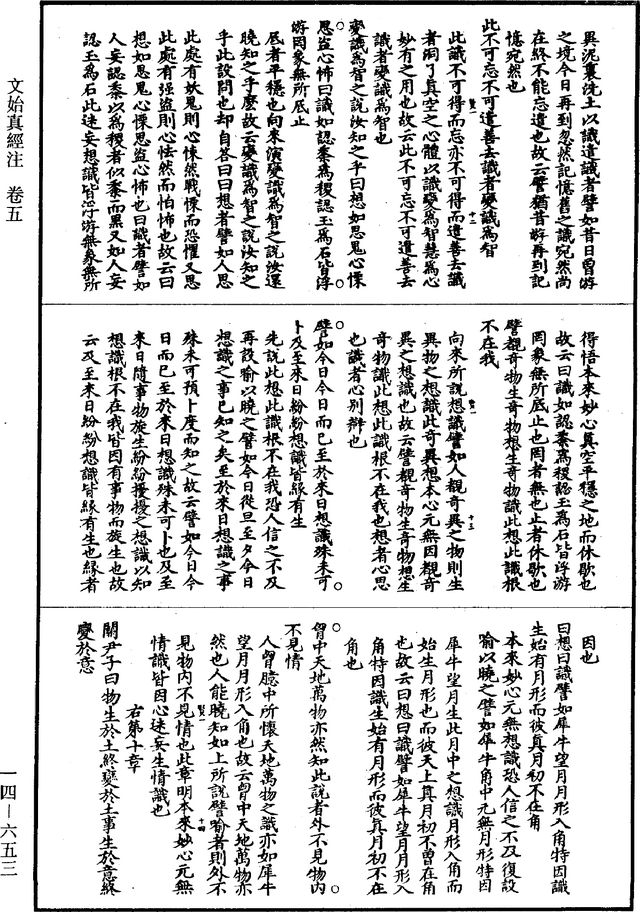 文始真經注　卷五
一四—六五三
異泥裏洗土以識遣識者譬如昔日曾游
之境今日再到忽然記憶舊之識宛然尚
在終不能忘遣也故云譬猶昔游再到記
憶宛然也
此不可忘不可遣善去識者變識爲智
此識不可得而忘亦不可得而遣善去識
者洞了真空之心體以識變爲智慧爲心
妙有之用也故云此不可忘不可遣善去
識者變識爲智也
變識爲智之說汝知之乎曰想如思鬼心慄
思盜心怖曰識如認黍爲稷認玉爲石皆浮
游罔象無所底止
底者平穩也向來演變識爲智之說汝還
曉知之乎麼故云變識爲智之說汝知之
乎此設問也却自荅曰曰想者譬如人思
此處有妖鬼則心悚然戰慄而恐懼又思
此處有强盜則心怯然而怕怖也故云曰
想如思鬼心慄思盜心怖也曰識者譬如
人妄認黍以爲稷者似黍而黑又如人妄
認玉爲石此迷妄想識皆浮游無象無所
得悟本來妙心真空平穩之地而休歇也
故云曰識如認黍爲稷認玉爲石皆浮游
罔象無所底止也罔者無也止者休歇也
譬覩奇物生奇物想生奇物識此想此識根
不在我
向來所說想識譬如人覩奇異之物則生
異物之想識此奇異想本心元無因覩奇
異之想識也故云譬覩奇物生奇物想生
奇物識此想此識根不在我也想者心思
也識者心別辯也
譬如今日今日而已至於來日想識殊未可
卜及至來日紛紛想識皆緣有生
先說此想此識根不在我恐人信之不及
再設喻以曉之譬如今日從旦至夕今日
想識之事已知之矣至於來日想識之事
殊未可預卜度而知之故云譬如今日今
日而已至於來日想識殊未可卜也及至
來日隨事物旋生紛紛擾擾之想識以知
想識根不在我皆因有事物而旋生也故
云及至來日紛紛想識皆緣有生也緣者
因也
曰想曰識譬如犀牛望月月形入角特因識
生始有月形而彼真月初不在角
本來妙心元無想識恐人信之不及復設
喻以曉之譬如犀牛角中元無月形特因
犀牛望月生此月中之想識月形入角而
始生月形也而彼天上真月初不曾在角
也故云曰想曰識譬如犀牛望月月形入
角特因識生始有月形而彼真月初不在
角也
曾中天地萬物亦然知此說者外不見物內
不見情
人曾臆中所懷天地萬物之識亦如犀牛
望月月形入角也故云曾中天地萬物亦
然也人能曉知如上所說譬喻者則外不
見物內不見情也此章明本來妙心元無
情識皆因心迷妄生情識也
右第十章
關尹子曰物生於土終變於土事生於意終
變於意